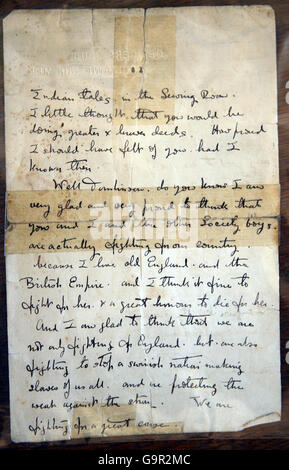 Indian tales, in the Sewing Room.
I little thought, that you would be
doing greater & braver deeds. How proud
I should have felt of you, had I
known then.
Well Tomlinson, do you know I am
very glad and very proud to think that
you and I and ten other Society boys
are actually fighting for our country.
because I love old England. and the
British Empire. and I think it fine to
fight for her. & a great honour to die for her.
And I am glad to think that we are
not only fighting for England. but are also
fighting to stop a swinish nation making
slaves of us all. and are protecting the
weak against the strong. We are
fighting for a great cause.
alamy
G9R2MC